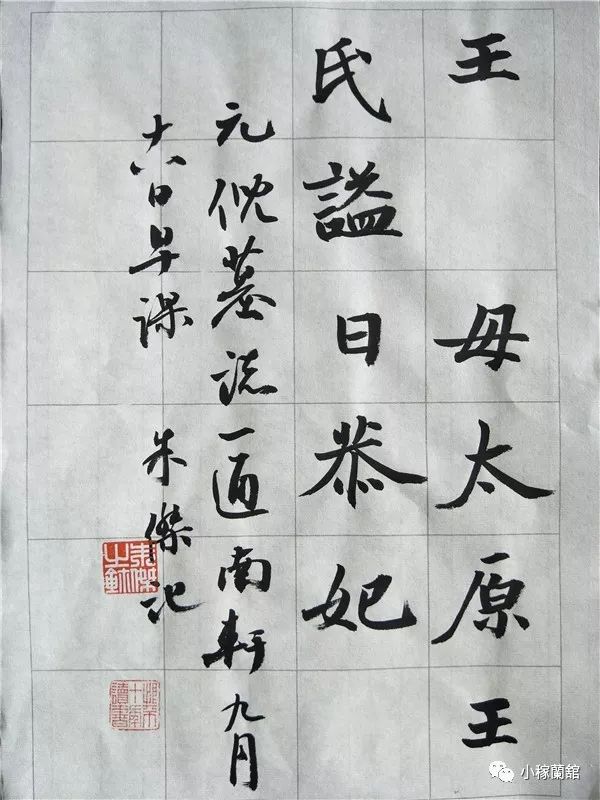 王 母太原王
氏謚曰恭妃
元倪墓誌一通南軒九月
十六日早課 朱傑記
朱傑之鉨
小稼蘭舘